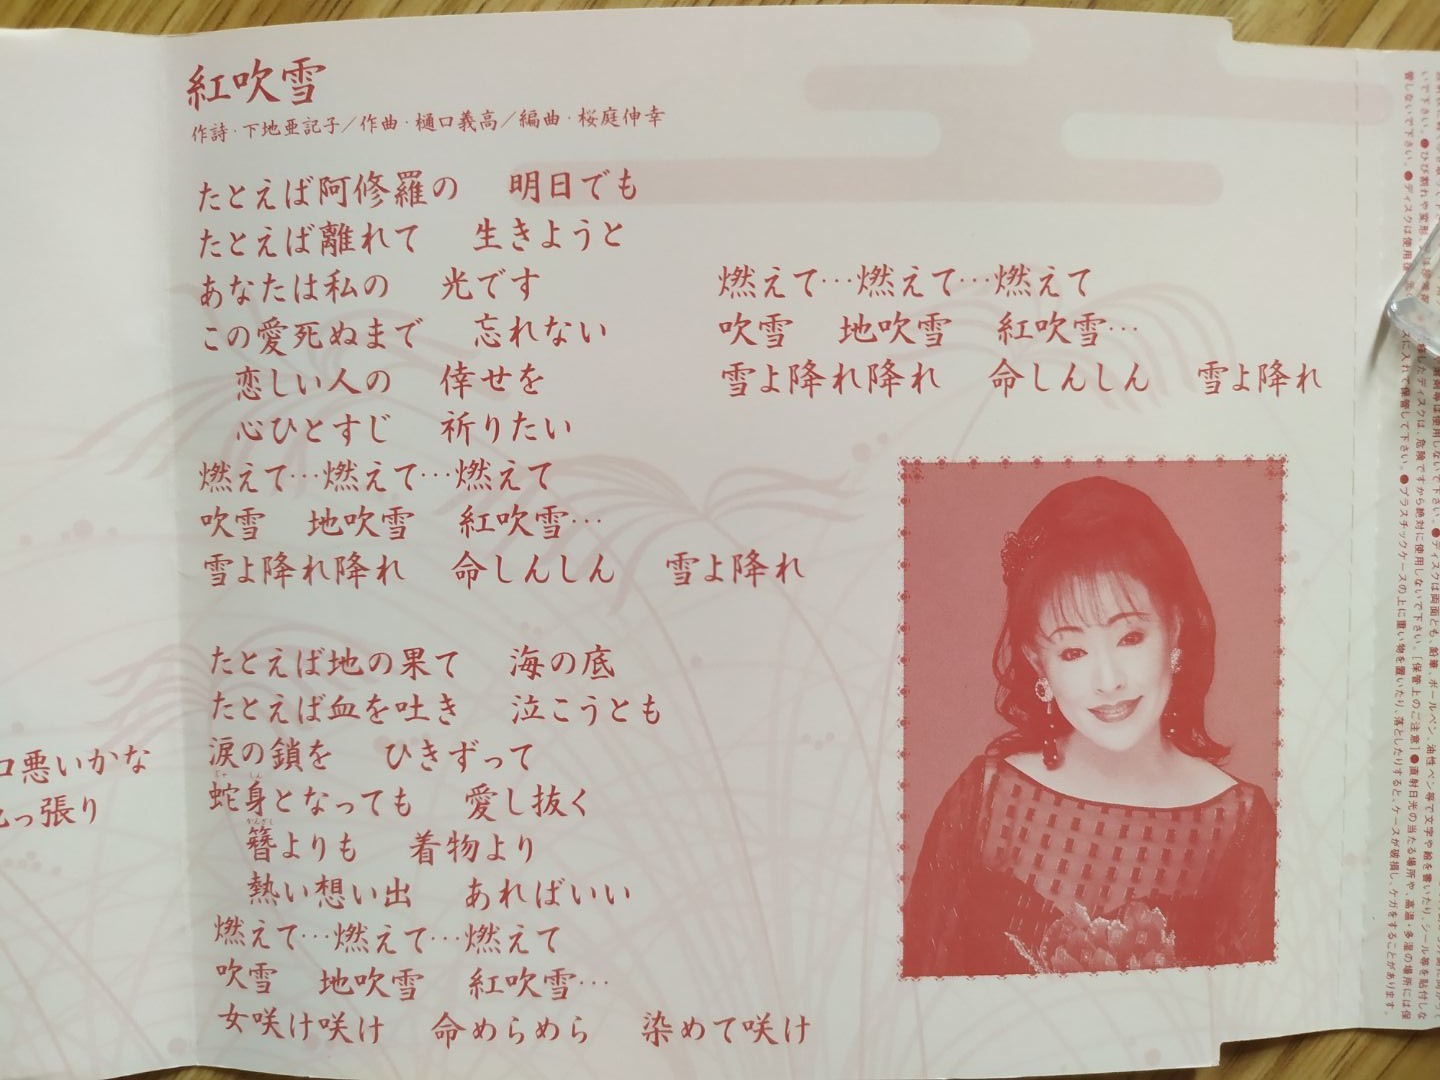 紅吹雪
作詩・下地亜記子／作曲・樋口義高／編曲・桜庭伸幸
たとえば阿修羅の 明日でも
たとえば離れて 生きようと
あなたは私の 光です
この愛死ぬまで 忘れない
恋しい人の 倖せを
心ひとすじ 祈りたい
燃えて…燃えて…燃えて
吹雪 地吹雪 紅吹雪…
雪よ降れ降れ 命しんしん 雪よ降れ
たとえば地の果て 海の底
たとえば血を吐き 泣こうとも
涙の鎖を ひきずって
蛇身となっても 愛し抜く
簪よりも 着物より
熱い想い出 あればいい
燃えて…燃えて…燃えて
吹雪 地吹雪 紅吹雪…
女咲け咲け 命めらめら 染めて咲け
燃えて…燃えて…燃えて
吹雪 地吹雪 紅吹雪…
雪よ降れ降れ 命しんしん 雪よ降れ
口悪いかな
っ張り
じゃ しん
かんざし
は使用しないで下さい。●ディスクは両面とも、鉛筆、ボールペン、油性ペン等で文字や絵を書いたり、シール等を貼付しな
いで下さい。●ひび割れや変形、
したディスクは、危険ですから絶対に使用しないで下さい。［保管上のご注意］●直射日光の当たる場所や、高温・多湿の場所には保
管しないで下さい。●ディスクは使用後、
スに入れて保管して下さい。●プラスチックケースの上に重い物を置いたり、落としたりすると、ケースが破損し、ケガをすることがあります。